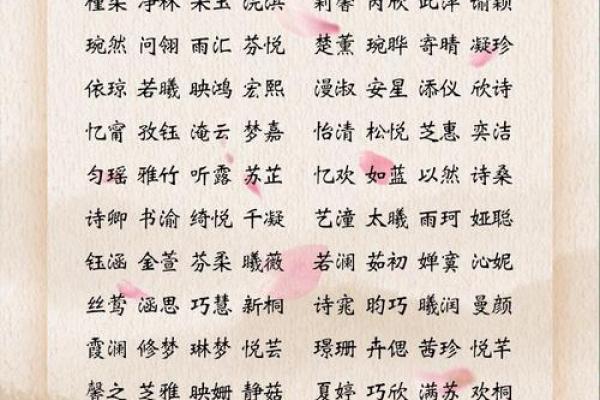 净林 浣淇 莉馨 芮欣 此萍
琬然 问翎 雨汇 芬悦 楚薰 琬晔 寄晴 凝珍
依琼 若曦 映鸿 宏熙 漫淑 安星 添仪 欣诗
忆甯 孜钰 淹云 梦嘉 怡清 松悦 芝惠 奕洁
匀瑶 雅竹 听露 苏芷 忆欢 如蓝 以然 诗桑
诗卿 书渝 绮悦 千凝 艺潼 太曦 雨珂 娅聪
钰涵 金萱 芬柔 曦薇 若澜 茹初 婵寞 沁妮
丝莺 涵思 巧慧 新桐 诗窕 昀巧 曦润 曼颜
霞澜 修梦 琳梦 悦芸 璟珊 卉偲 茜珍 悦芊
馨之 芝雅 映姗 静菇 夏婷 巧欣 满苏 欢桐